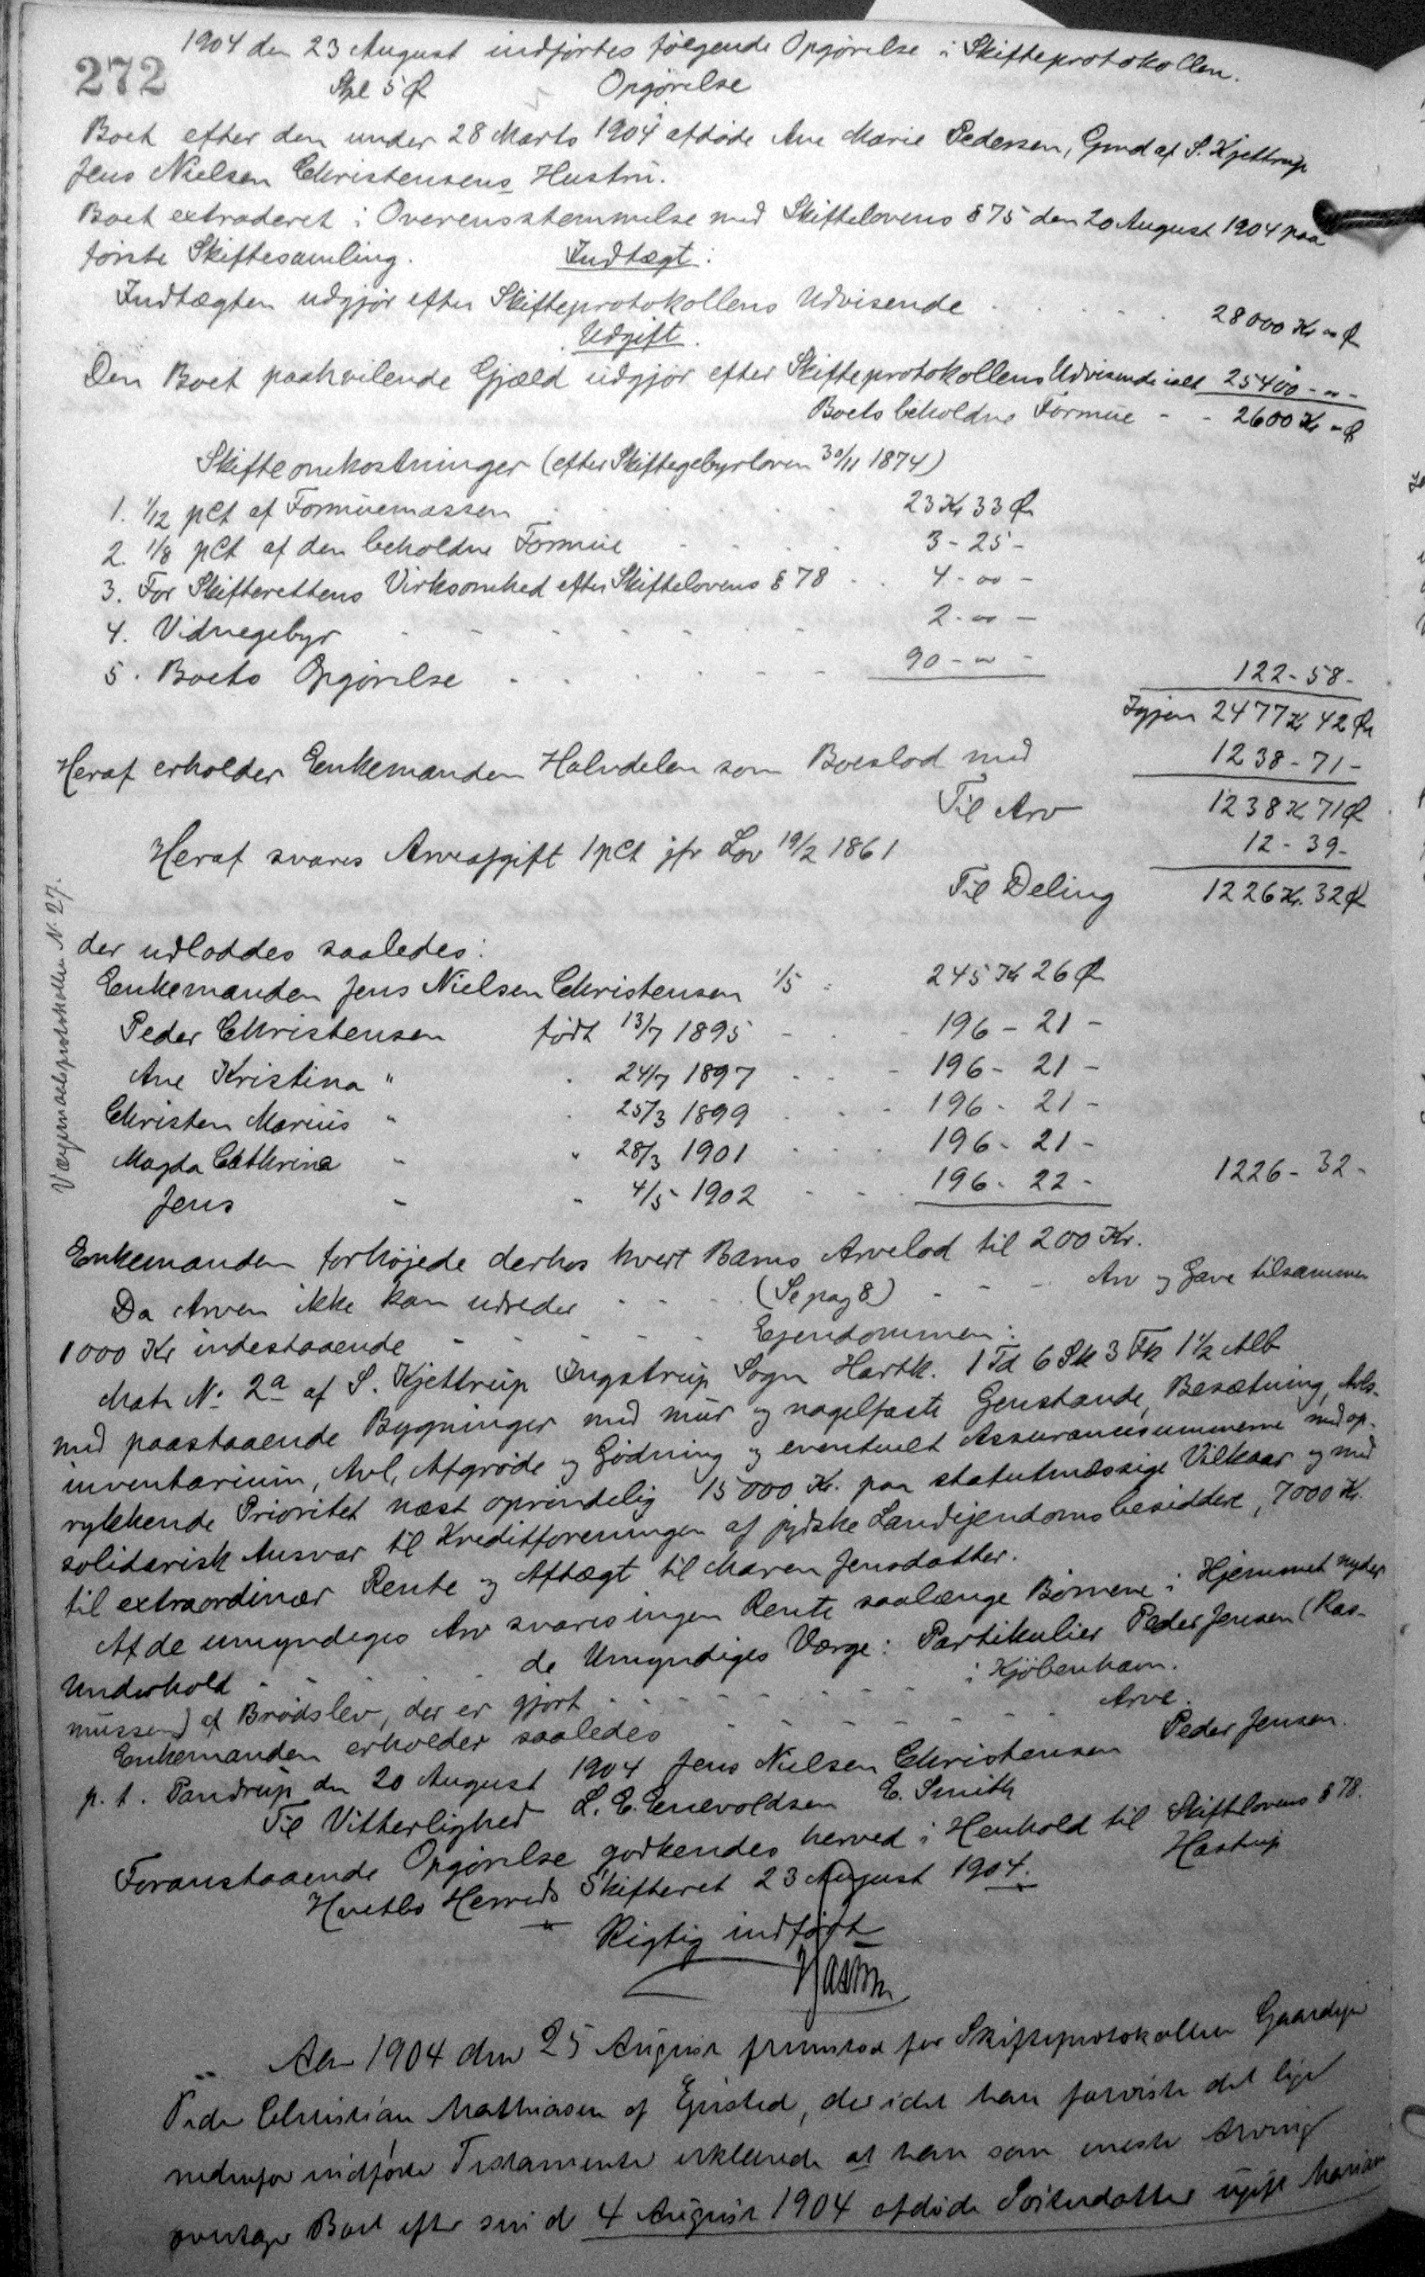 272
1904 den 23 August indførtes følgende Opgjørelse i Skifteprotokollen.
Opgjørelse
Boet efter den under 28 Marts 1904 afdøde Ane Marie Pedersen, Gmd af S. Kjettrup
Jens Nielsen Christensens Hustru.
Boet extraderet i Overensstemmelse med Skiftelovens § 75 den 20 August 1904 paa
første Skiftesamling. Indtægt:
Indtægten udgjør efter Skifteprotokollens Udvisende 28000 Kr " Ø
Udgift.
Den Boet paahvilende Gjæld udgjør efter Skifteprotokollens Udvisende ialt 25400 - " -
Boets beholdne Formue - - 2600 Kr " Ø
Skifteomkostninger (efter Skiftegebyrloven 30/11 1874)
1. 1/12 pCt af Formuemassen 23 Kr 33 Ø
2. 1/8 pCt af den beholdne Formue 3 - 25 -
3. For Skifterettens Virksomhed efter Skiftelovens § 78 4 - 00 -
4. Vidnegebyr 2 - 00 -
5. Boets Opgjørelse 90 - " - 122 - 58 -
Igjen 2477 Kr 42 Ø
Heraf erholder Enkemanden Halvdelen som Boeslod med 1238 - 71 -
Til Arv 1238 Kr 71 Ø
Heraf svares Arveafgift 1 pCt jfr Lov 19/2 1861 12 - 39 -
Til Deling 1226 Kr. 32 Ø
Værgemaalsprotokollen N 27.
der udloddes saaledes:
Enkemanden Jens Nielsen Christensen 1/5 245 Kr 26 Ø
Peder Christensen født 13/7 1895 - 196 - 21 -
Ane Kristina " - 24/7 1897 - - 196 - 21 -
Christen Marius - - 25/3 1899 - - 196 - 21 -
Magda Cathrine - " 28/3 1901 - - 196 - 21 -
Jens - - 4/5 1902 - - 196 - 22 - 1226 - 32 -
Enkemanden forhøjede derhos hvert Barns Arvelod til 200 Kr.
Da Arven ikke kan udredes - - - (Se pag 8) - - - Arv og Gave tilsammen
1000 Kr indestaaende - - - - - Ejendommen:
Matr No 2a af S. Kjettrup Ingstrup Sogn Hartk. 1 Td 6 Sk 3 Fk 1 1/2 Alb
med paastaaende Bygninger med mur og nagelfaste Genstande, Besætning, Avls-
inventarium, Avl, Afgrøde og Gødning og eventuelt Assurancesummerne med op-
rykkende Prioritet næst oprindelig 15000 Kr. paa statutmæssige Vilkaar og med
solidarisk Ansvar til Kreditforeningen af jydske Landejendomsbesiddere, 7000 Kr.
til extraordinær Rente og Aftægt til Maren Jensdatter.
Af de umyndiges Arv svares ingen Rente saalænge Børnene i Hjemmet nyder
Underhold - - - - de Umyndiges Værge: Partikulier Peder Jensen (Ras-
mussen) af Brødslev, der er gjort - - - - - i Kjøbenhavn.
Enkemanden erholder saaledes - - - - - Arve.
p. t. Pandrup den 20 August 1904 Jens Nielsen Christensen Peder Jensen.
Til Vitterlighed L. C. Enevoldsen E. Smith
Foranstaaende Opgjørelse godkendes herved i Henhold til Skiftelovens § 78.
Hvetbo Herreds Skifteret 23 August 1904. Hastrup
Rigtig indført
Hastrup
Aar 1904 den 25 August fremstod for Skifteprotokollen Gaardejer
Peder Christian Mathiasen af Ejersted, der idet han foreviste det lige
nedenfor indførte Testamente erklærede at han som eneste Arving
overtager Boet efter sin d 4 August 1904 afdøde Søsterdatter ugift